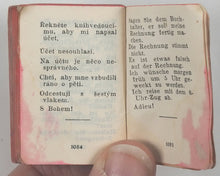 Řekněte knihvedoucí-
mu, aby mi napsal
účet.
Účet nesouhlasí.
Na účtu je něco ne-
správného.
Chci, aby mne vzbudili
ráno o pěti.
Odcestuji s šestým
vlakem.
S Bohem!
1084
Sagen Sie dem Buch-
halter, er soll mir
meine Rechnung fertig
machen.
Die Rechnung stimmt
nicht.
Es ist etwas falsch
auf der Rechnung.
Ich wünsche morgen
früh um 5 Uhr ge-
weckt zu werden.
Ich reise mit dem
Uhr-Zug ab.
Adieu!
1085